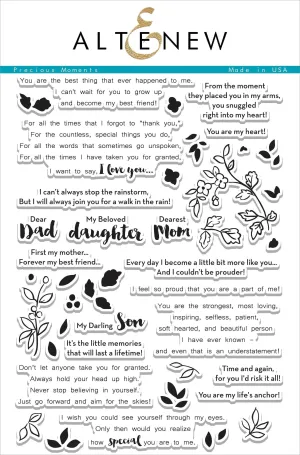 ALTENEW
Precious Moments
Made in USA
You are the best thing that ever happened to me.
I can't wait for you to grow up
and become my best friend!
From the moment
they placed you in my arms,
you snuggled
right into my heart!
For all the times that I forgot to "thank you,"
For the countless, special things you do,
For all the words that sometimes go unspoken,
For all the times I have taken you for granted,
I want to say, I love you...
You are my heart!
I can't always stop the rainstorm,
But I will always join you for a walk in the rain!
Dear
Dad
My Beloved
daughter
Dearest
Mom
First my mother...
Forever my best friend...
Every day I become a little bit more like you...
And I couldn't be prouder!
I feel so proud that you are a part of me!
My Darling Son
You are the strongest, most loving,
inspiring, selfless, patient,
soft hearted, and beautiful person
I have ever known -
and even that is an understatement!
It's the little memories
that will last a lifetime!
Don't let anyone take you for granted.
Always hold your head up high.
Never stop believing in yourself.
Just go forward and aim for the skies!
Time and again,
for you I'd risk it all!
You are my life's anchor!
I wish you could see yourself through my eyes.
Only then would you realize
how special you are to me.